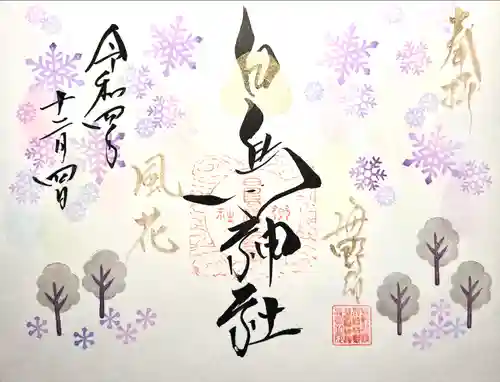 奉拝
白鳥神社
風花
令和四年
十二月四日